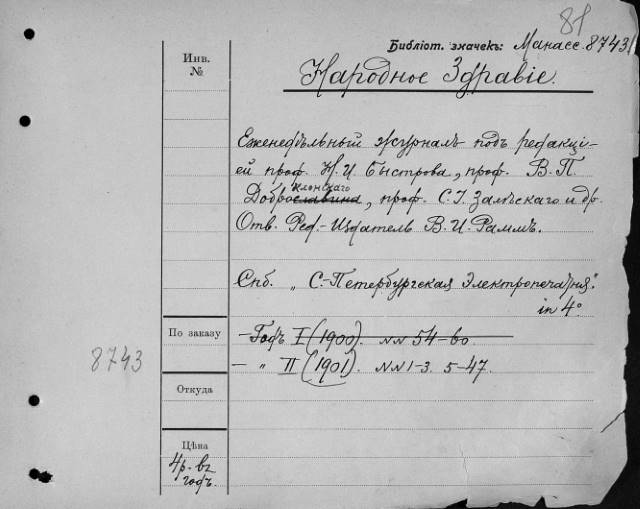 81
Библіот. значекъ: Манасс. 8743/
Инв.
№
Народное Здравіе.
Еженедѣльный журналъ подъ редакці-
ей проф. Н. И. Быстрова, проф. В. П.
клонскаго
Доброславина, проф. С. І. Залѣскаго и др.
Отв. Ред.-Издатель В. И. Раммъ.
Спб. „С.-Петербургская Электропечатня".
in 4°
По заказу
- Годъ I (1900). NN 54-60.
8743
- „ II (1901). NN 1-3. 5-47.
Откуда
Цѣна
4р. въ
годъ